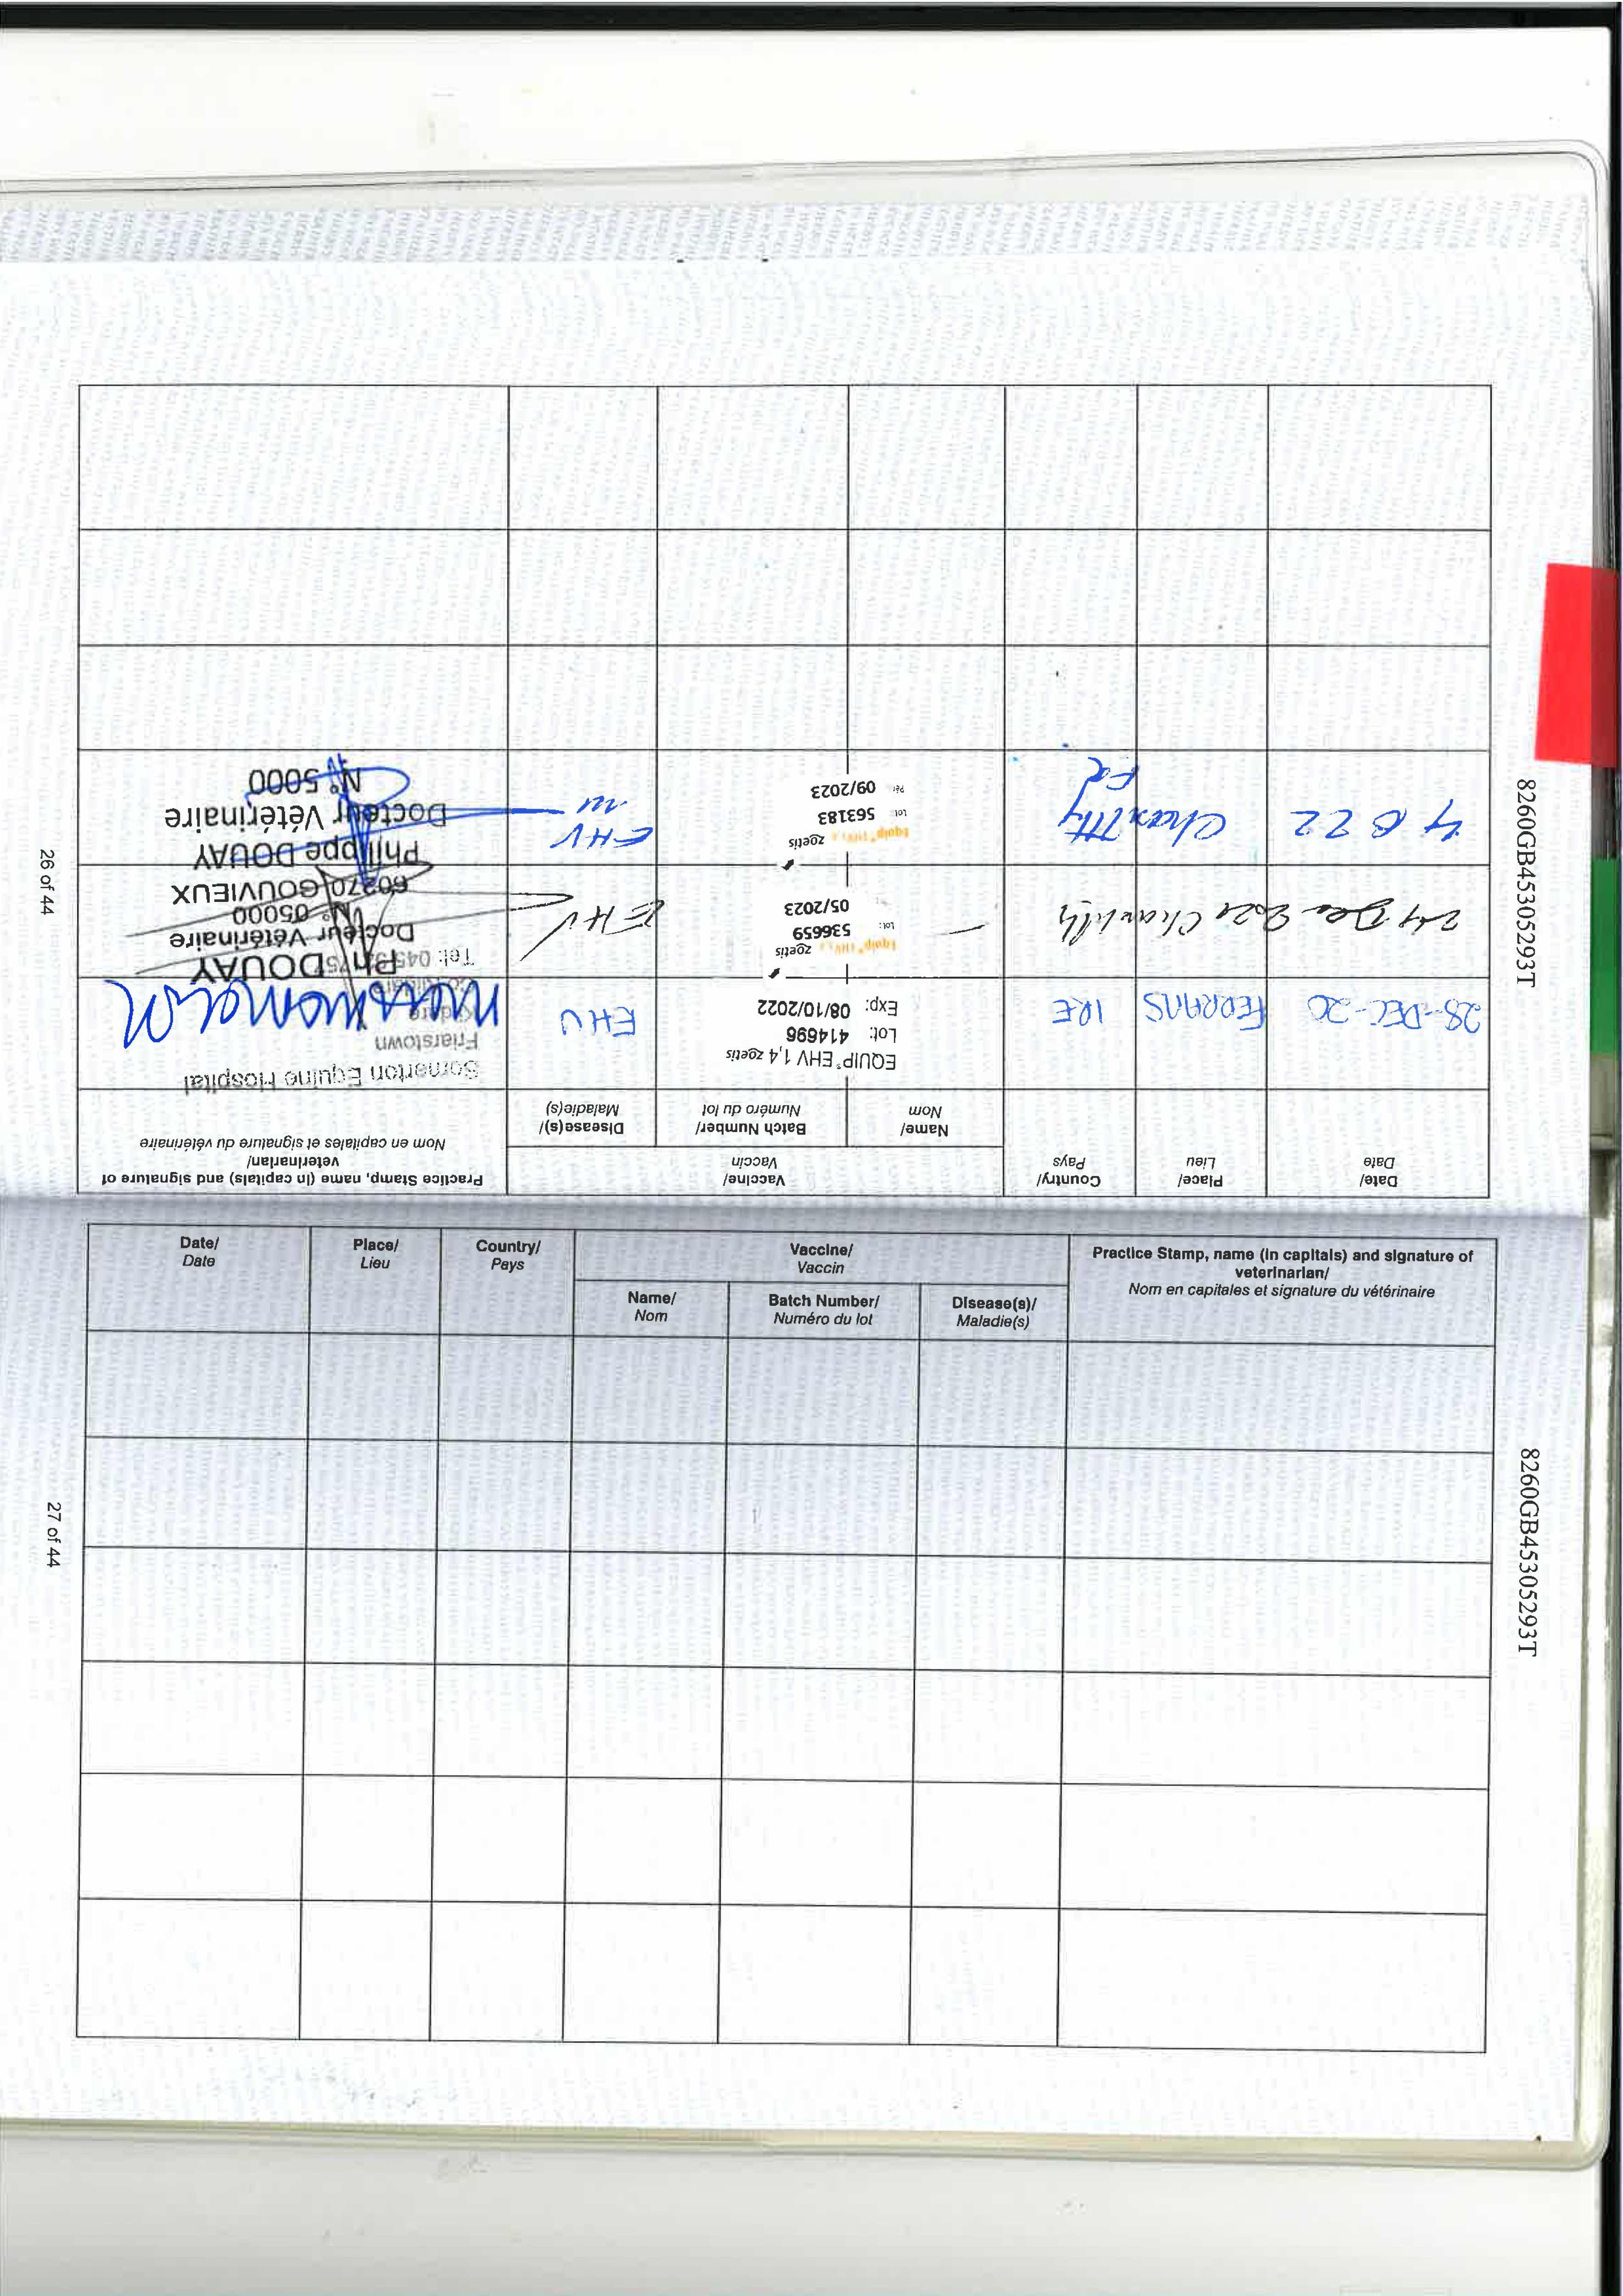 8260GB45305293T
26 of 44
Date/
Date
Place/
Lieu
Country/
Pays
Vaccine/
Vaccin
Name/
Nom
Batch Number/
Numéro du lot
Disease(s)/
Maladie(s)
Practice Stamp, name (in capitals) and signature of
veterinarian/
Nom en capitales et signature du vétérinaire
28-DEC-20
FEDRANS
IRE
EQUIP® EHV 1,4 zoetis
Lot: 414696
Exp: 08/10/2022
EHV
Equine Hospital
Friarstown
Kildare
Tel: 045
24 Dec 2021 Chantilly
Equip® EHV 1,4 zoetis
Lot: 536659
05/2023
EHV
Ph DOUAY
Docteur Vétérinaire
N° 05000
60270 GOUVIEUX
Chantilly
Equip® EHV 1,4 zoetis
Lot: 563183
Pér: 09/2023
EHV
Philippe DOUAY
Docteur Vétérinaire
N° 5000
Date/
Date
Place/
Lieu
Country/
Pays
Vaccine/
Vaccin
Name/
Nom
Batch Number/
Numéro du lot
Disease(s)/
Maladie(s)
Practice Stamp, name (in capitals) and signature of
veterinarian/
Nom en capitales et signature du vétérinaire
8260GB45305293T
27 of 44